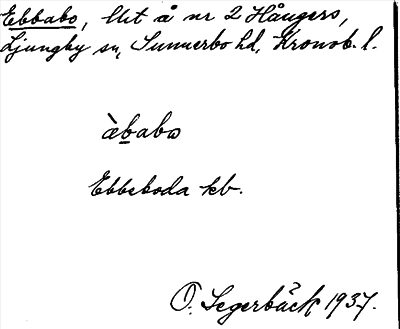 Ebbabo, lht å nr 2 Hångers,
Ljungby sn, Sunnerbo hd, Kronob. l.
àbabω
Ebbeboda kb.
O. Segerbäck 1937.